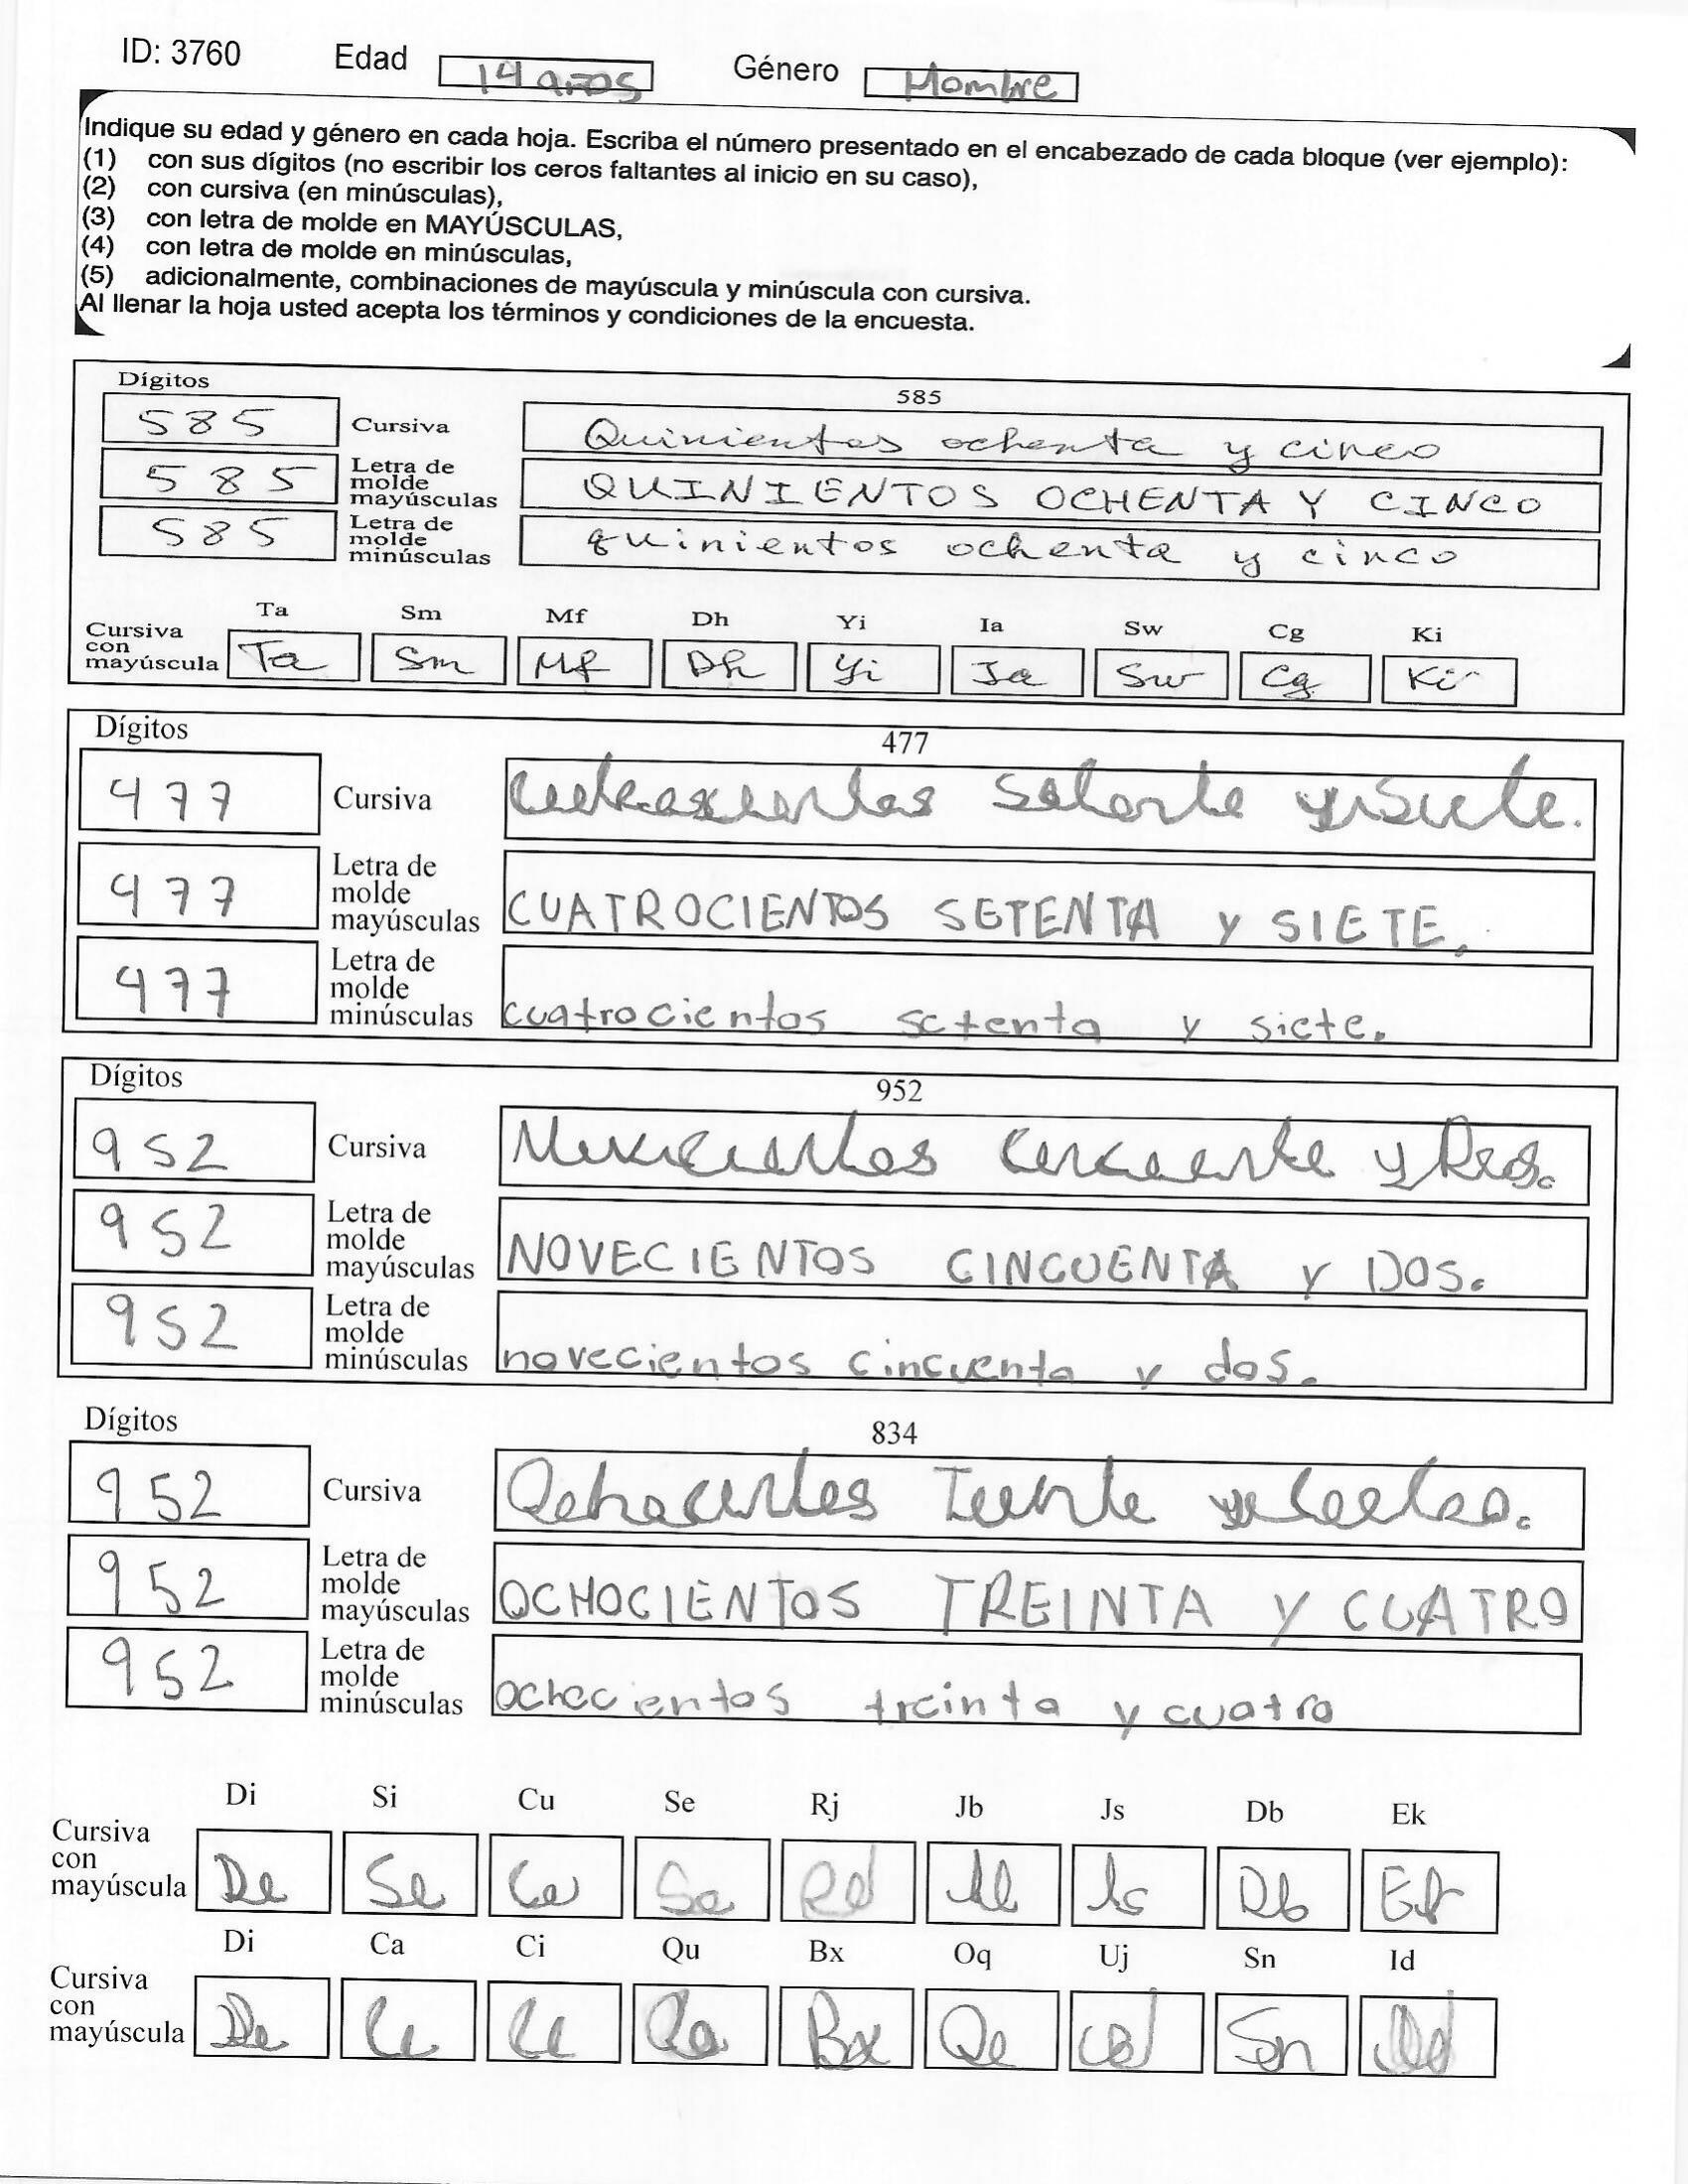 ID: 3760 Edad 14 años Género Hombre
Indique su edad y género en cada hoja. Escriba el número presentado en el encabezado de cada bloque (ver ejemplo):
(1) con sus dígitos (no escribir los ceros faltantes al inicio en su caso),
(2) con cursiva (en minúsculas),
(3) con letra de molde en MAYÚSCULAS,
(4) con letra de molde en minúsculas,
(5) adicionalmente, combinaciones de mayúscula y minúscula con cursiva.
Al llenar la hoja usted acepta los términos y condiciones de la encuesta.
Dígitos 585
585 Cursiva Quinientos ochenta y cinco
585 Letra de molde mayúsculas QUINIENTOS OCHENTA Y CINCO
585 Letra de molde minúsculas quinientos ochenta y cinco
Ta Sm Mf Dh Yi Ia Sw Cg Ki
Cursiva con mayúscula Ta Sm Mf Dh Yi Ia Sw Cg Ki
Dígitos 477
477 Cursiva
477 Letra de molde mayúsculas CUATROCIENTOS SETENTA y SIETE.
477 Letra de molde minúsculas cuatrocientos setenta y siete.
Dígitos 952
952 Cursiva
952 Letra de molde mayúsculas NOVECIENTOS CINCUENTA y DOS.
952 Letra de molde minúsculas novecientos cincuenta y dos.
Dígitos 834
952 Cursiva
952 Letra de molde mayúsculas OCHOCIENTOS TREINTA Y CUATRO
952 Letra de molde minúsculas ochocientos treinta y cuatro
Di Si Cu Se Rj Jb Js Db Ek
Cursiva con mayúscula De Se Db
Di Ca Ci Qu Bx Oq Uj Sn Id
Cursiva con mayúscula De Bx Sn